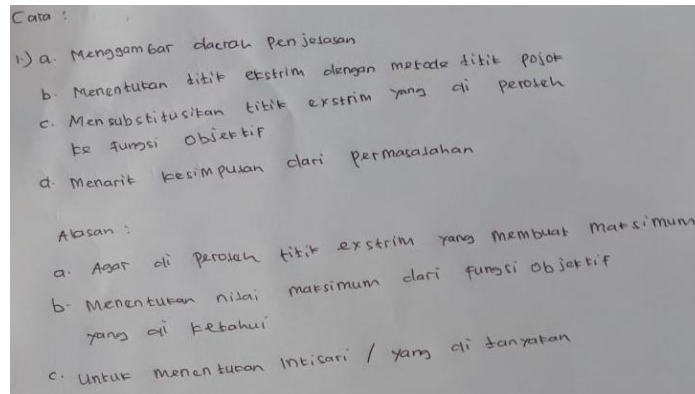 Cara :
1.) a. Menggambar daerah penjelasan
b. Menentukan titik ekstrim dengan metode titik pojok
c. Mensubstitusikan titik exstrim yang di peroleh
ke fungsi objektif
d. Menarik kesimpulan dari permasalahan
Alasan :
a. Agar di peroleh titik exstrim yang membuat maksimum
b. Menentukan nilai maksimum dari fungsi objektif
yang di ketahui
c. Untuk menentukan Intisari / yang di tanyakan